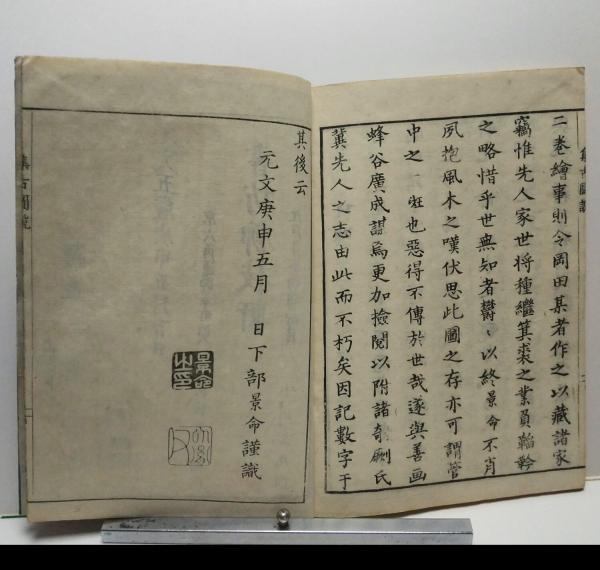 二卷繪事則令岡田某者作之以藏諸家
竊惟先人家世将種繼箕裘之業負韜鈐
之略惜乎世無知者欝〻以終景命不肖
夙抱風木之嘆伏思此圖之存亦可謂管
中之一斑也惡得不傳於世哉遂與善画
蜂谷廣成謀焉更加撿閲以附諸奇劂氏
冀先人之志由此而不朽矣因記數字于
其後云
元文庚申五月 日下部景命謹識